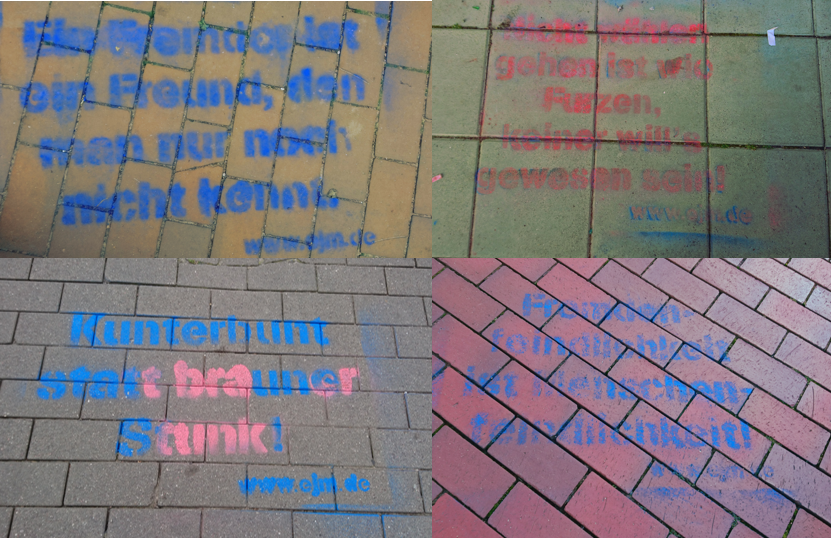 Ein Fremder ist
ein Freund, den
man nur noch
nicht kennt.
www.ejm.de
Nicht wählen
gehen ist wie
Furzen,
keiner will's
gewesen sein!
www.ejm.de
Kunterbunt
statt brauner
Stunk!
www.ejm.de
Fremden-
feindlichkeit
ist Menschen-
feindlichkeit!
www.ejm.de